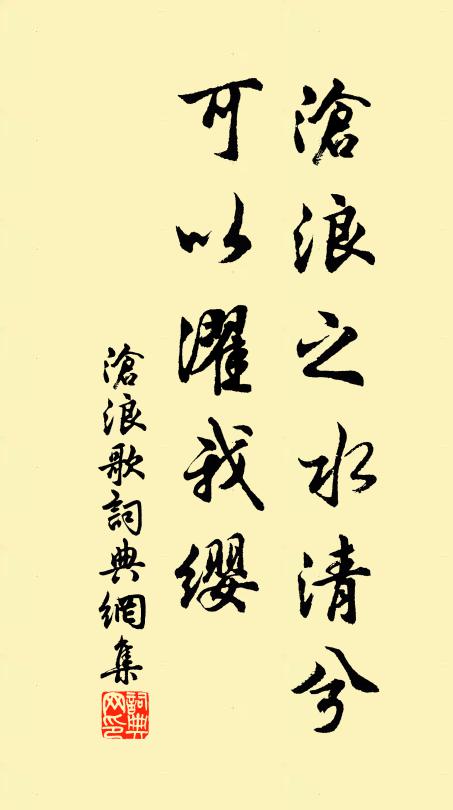 滄浪之水清兮
可以濯我纓
滄浪歌詞典網集
詞典網印